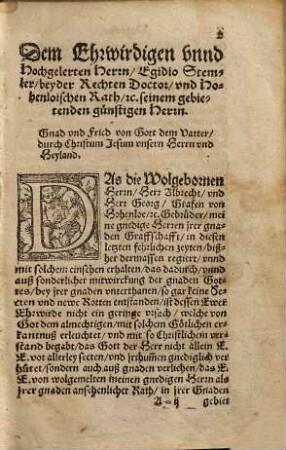 2
Dem Ehrwirdigen vnnd
Hochgelerten Herrn/ Egidio Stem-
ler/ beyder Rechten Doctor/ vnd Ho-
henloischen Rath/ ꝛc. seinem gebie-
tenden günstigen Herrn.
Gnad vnd Frid von Gott dem Vatter/
durch Christum Jesum vnsern Herrn vnd
Heyland.
DAs die Wolgebornen
Herrn/ Herr Albrecht/ vnd
Herr Georg/ Grafen von
Hohenloe/ ꝛc. Gebrüder/ mei
ne gnedige Herren jrer gna
den Graffschafft/ in diesen
letzten fehrlichen zeyten/ biß
her dermassen regiert/ vnnd
mit solchem einsehen erhalten/ das dadurch/ vnnd
auß sonderlicher mitwirckung der gnaden Got-
tes/ bey jrer gnaden vnterthanen/ so gar keine Se-
cten vnd newe Rotten entstanden/ ist dessen Ewer
Ehrwirde nicht ein geringe vrsach/ welche von
Got dem almechtigen/ mit solchem Götlichen er-
kantnuß erleuchtet/ vnd mit so Christlichem ver-
stand begabt/ das Gott der Herr nicht allein E.
E. vor allerley secten/ vnd jrthumen gnediglich ver
hütet/ sondern auch auß gnaden verliehen/ das E.
E. von wolgemelten meinen gnedigen Herrn als
jrer gnaden ansehenlicher Rath/ in jrer Gnaden
A ij gebiet